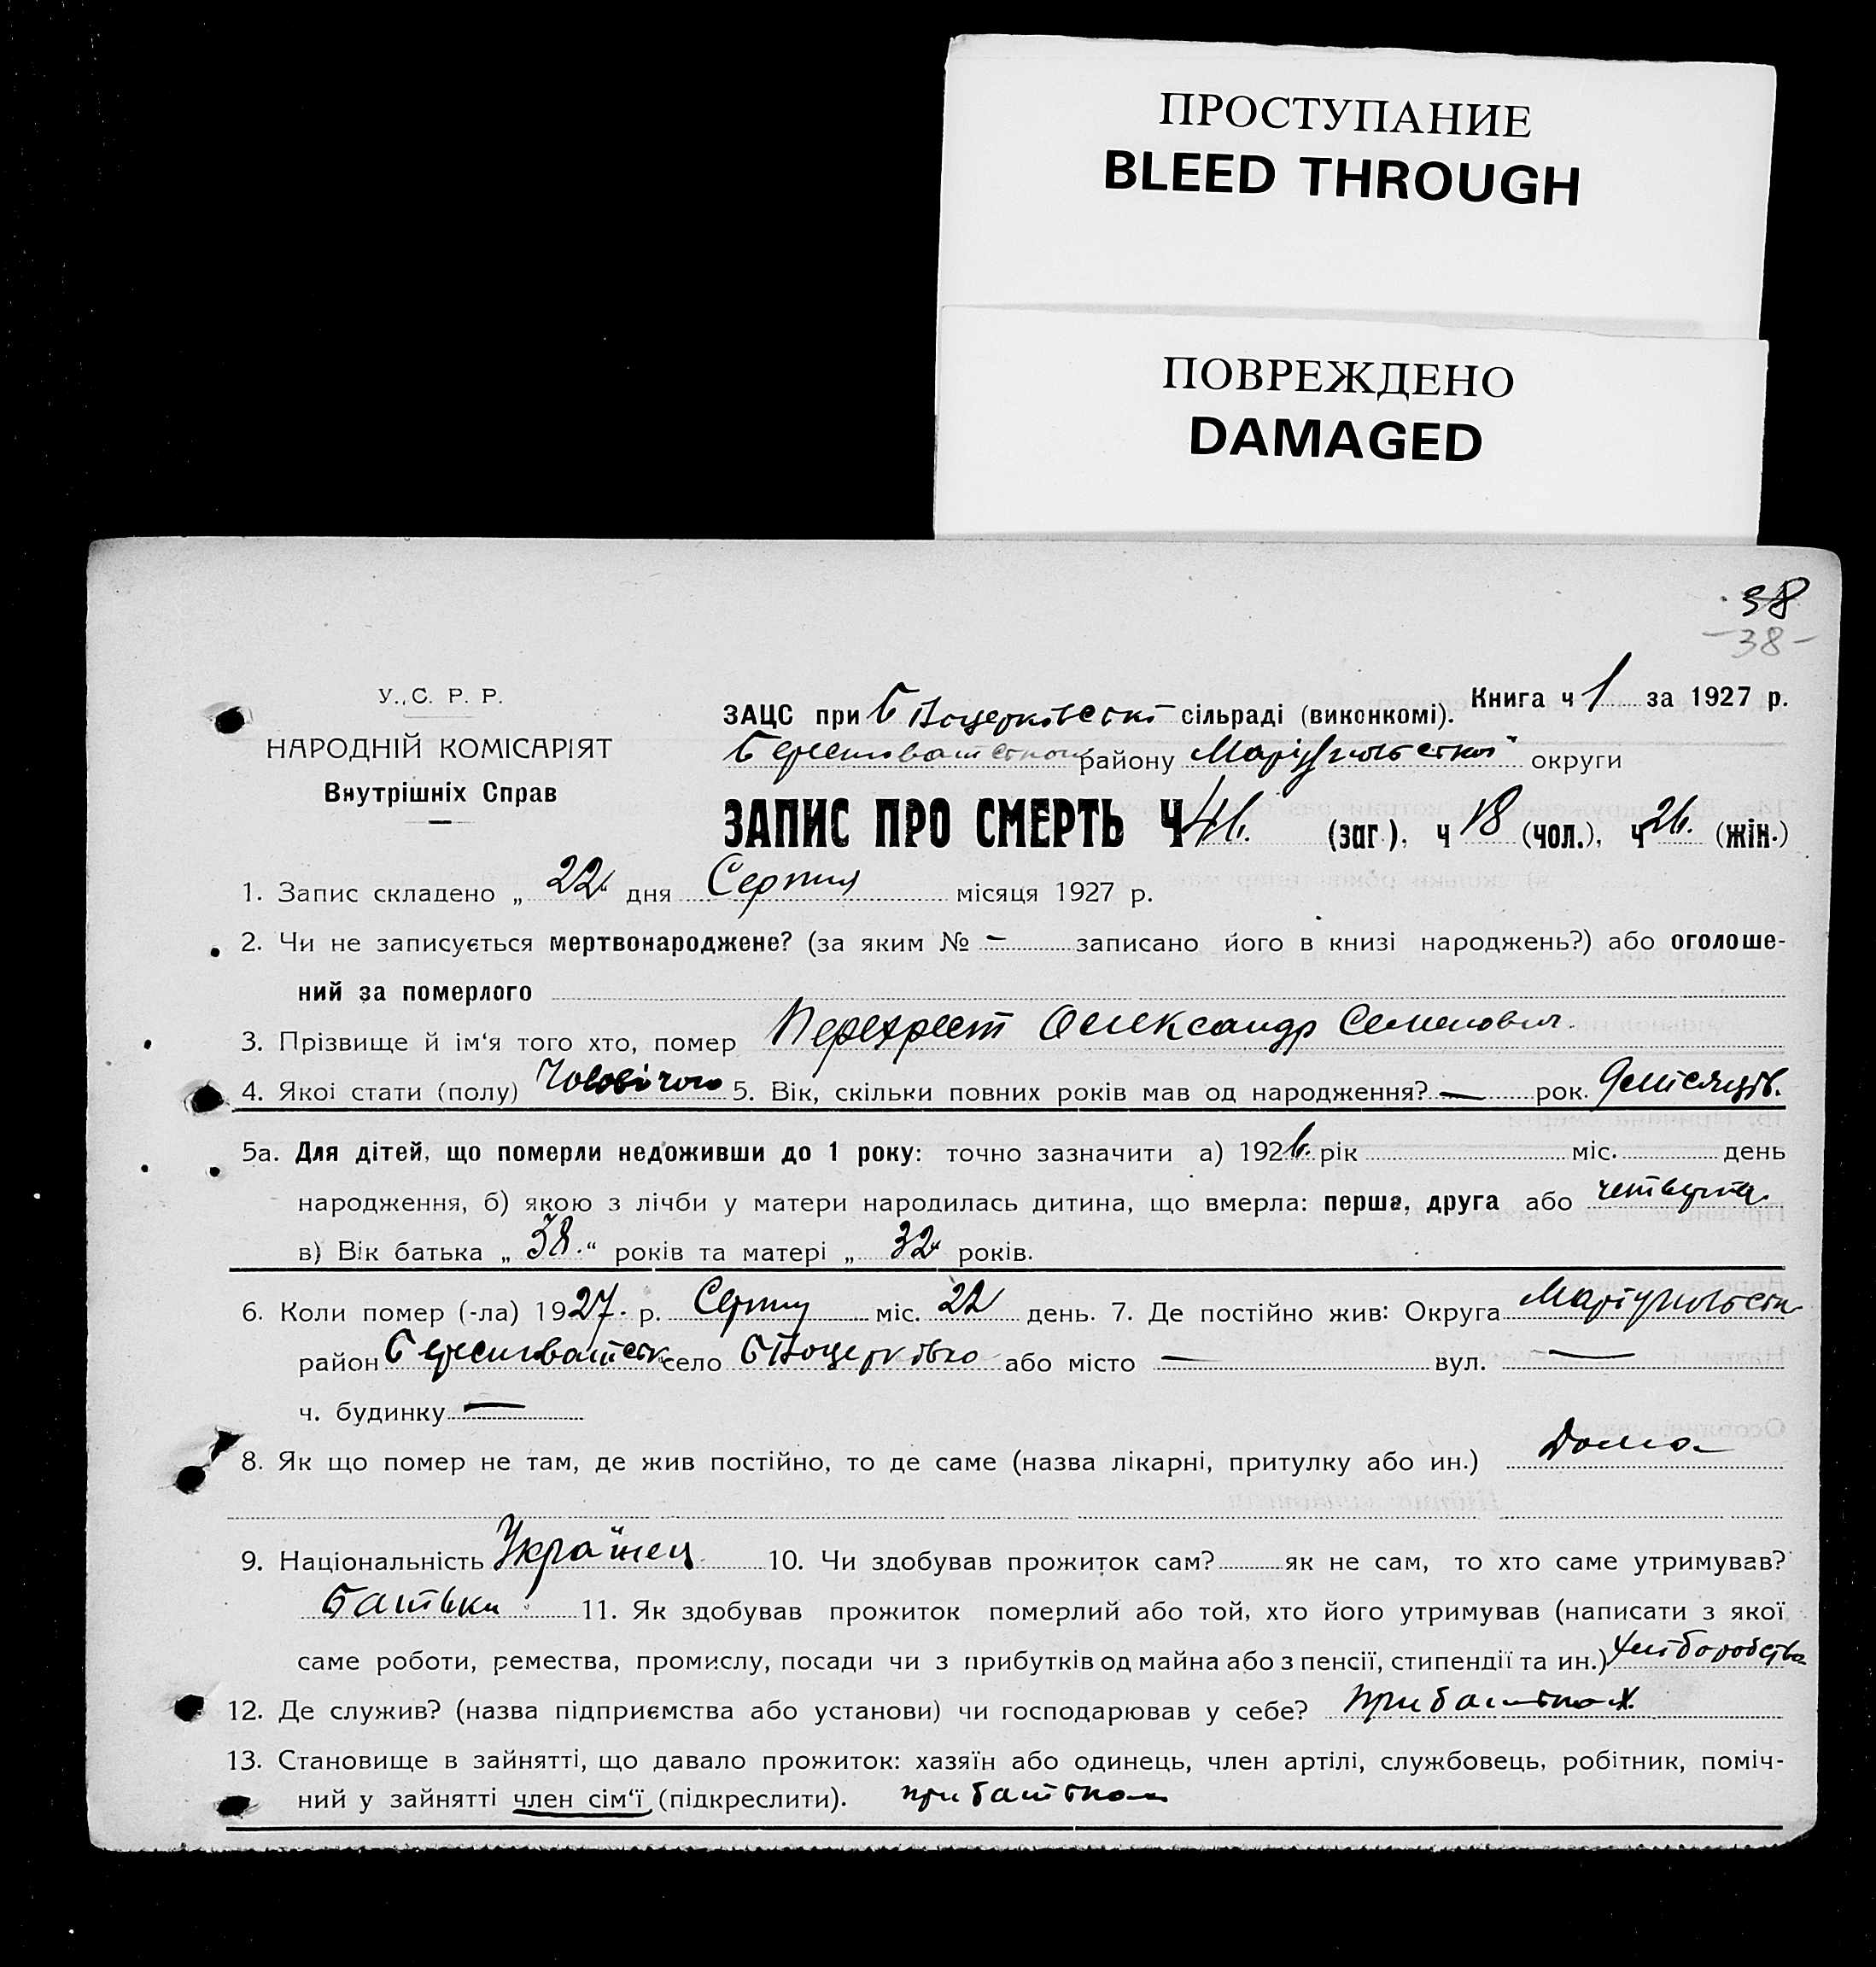 ПРОСТУПАНИЕ
BLEED THROUGH
ПОВРЕЖДЕНО
DAMAGED
38
-38-
У. С. Р. Р.
НАРОДНІЙ КОМІСАРІЯТ
Внутрішніх Справ
Книга ч 1 за 1927 р.
ЗАЦС при сільраді (виконкомі).
району Маріупольської округи
ЗАПИС ПРО СМЕРТЬ Ч (заг.), ч 18 (чол.), ч 26. (жін.)
1. Запис складено „ 22 дня Серпня місяця 1927 р.
2. Чи не записується мертвонароджене? (за яким № - записано його в книзі народжень?) або оголоше-
ний за померлого
3. Прізвище й ім'я того хто, помер Перехрест Олександр Семенович.
4. Якої стати (полу) Чоловічого 5. Вік, скільки повних років мав од народження? — рок. 9 місяців.
5а. Для дітей, що померли недоживши до 1 року: точно зазначити а) 1926. рік міс. день
народження, б) якою з лічби у матери народилась дитина, що вмерла: перша, друга або четверта.
в) Вік батька „ 38. “ років та матері „ 32 років.
6. Коли помер (-ла) 1927. р. Серпня міс. 22 день. 7. Де постійно жив: Округа Маріупольськ
район село або місто — вул. —
ч. будинку —
8. Як що помер не там, де жив постійно, то де саме (назва лікарні, притулку або ин.) Дома
9. Національність Українец 10. Чи здобував прожиток сам? як не сам, то хто саме утримував?
Батьки 11. Як здобував прожиток померлий або той, хто його утримував (написати з якої
саме роботи, ремества, промислу, посади чи з прибутків од майна або з пенсії, стипендії та ин.) хліборобства
12. Де служив? (назва підприємства або установи) чи господарював у себе? при батьках
13. Становище в зайнятті, що давало прожиток: хазяїн або одинець, член артілі, службовець, робітник, поміч-
ний у зайнятті член сім'ї (підкреслити). при батьках